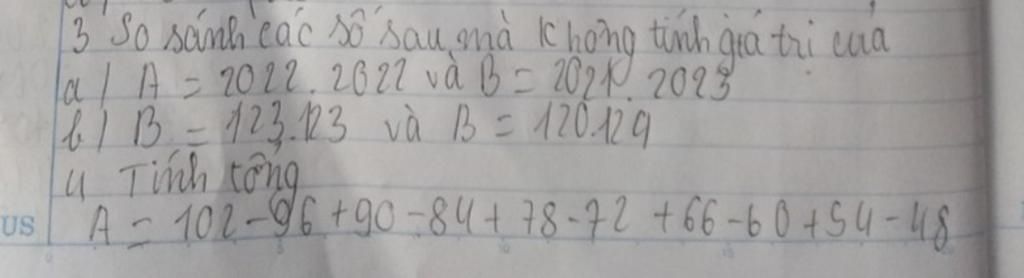 3 So sánh các số sau mà không tính giá trị của
a / A = 2022.2022 và B = 2021.2023
b / B = 123.123 và B = 120.129
4 Tính tổng
A = 102 - 96 + 90 - 84 + 78 - 72 + 66 - 60 + 54 - 48
US